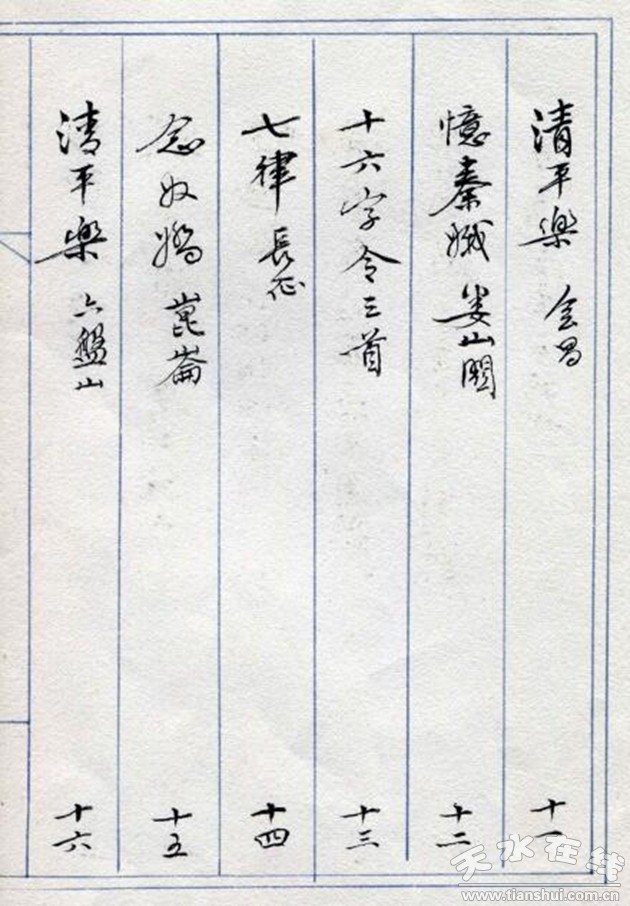 清平樂 会昌 十一
憶秦娥 娄山關 十二
十六字令三首 十三
七律 長征 十四
念奴嬌 崑崙 十五
清平樂 六盤山 十六
天水在线
www.tianshui.com.cn